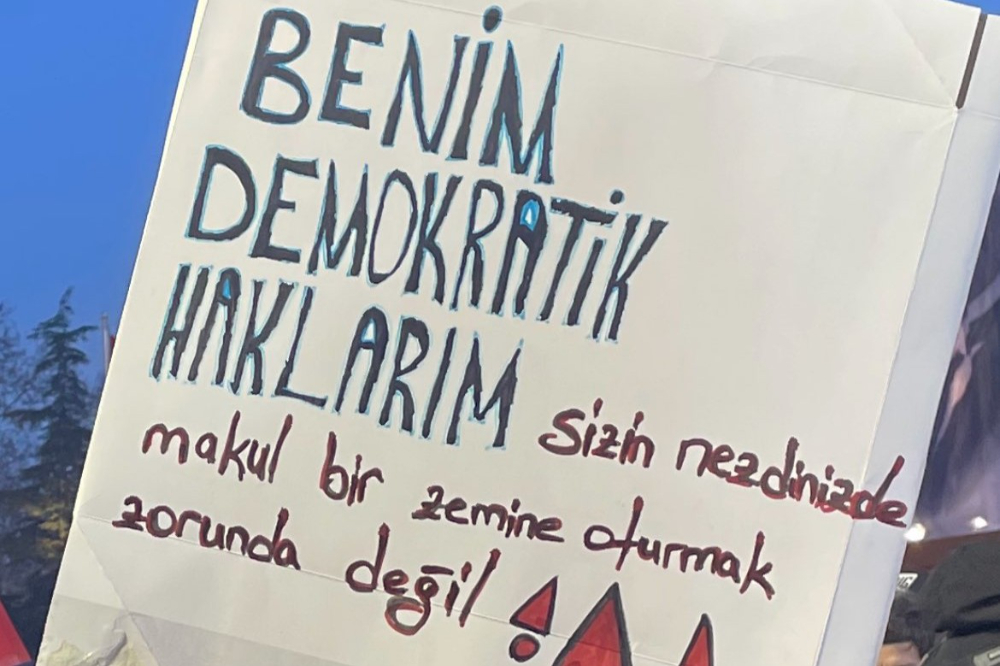 BENİM
DEMOKRATİK
HAKLARIM sizin nezdinizde
makul bir zemine oturmak
zorunda değil !